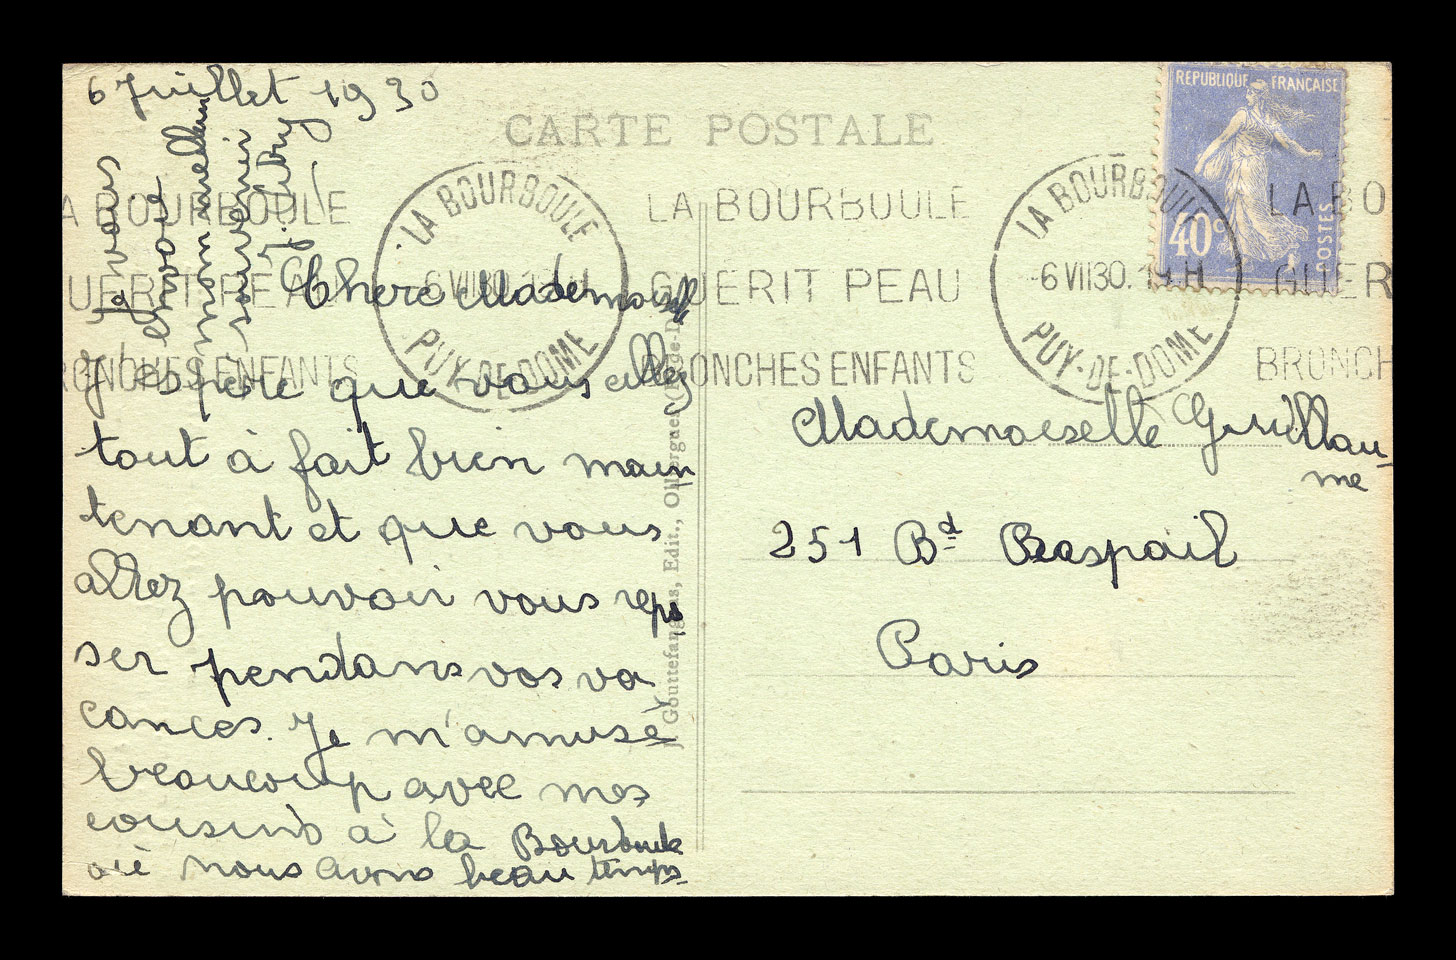 6 Juillet 1930
CARTE POSTALE
REPUBLIQUE FRANÇAISE
40c
POSTES
LA BOURBOULE
GUERIT PEAU
BRONCHES ENFANTS
LA BOURBOULE
6 VII 30
PUY-DE-DOME
LA BOURBOULE
GUERIT PEAU
BRONCHES ENFANTS
LA BOURBOULE
6 VII 30. 19 H
PUY-DE-DOME
LA BO
GUER
BRONCH
Chere Mademoiselle
J'espere que vous allez
tout à fait bien main
tenant et que vous
allez pouvoir vous repo
ser pendans vos va
cances. Je m'amuse
beaucoup avec mes
cousins à la Bourboule
où nous avons beau temps.
Je vous
envoie
mon meilleur
souvenir
Mademoiselle Guillau-
me
251 Bd Raspail
Paris
Gouttefangeas, Edit., Olliergues